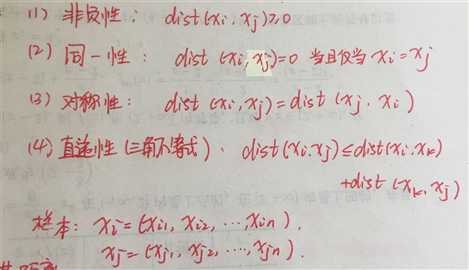 (1) 非负性: dist(xi, xj)≥0
(2) 同一性: dist(xi, xj)=0 当且仅当 xi=xj
(3) 对称性: dist(xi, xj)=dist(xj, xi)
(4) 直递性(三角不等式): dist(xi, xj)≤dist(xi, xk)
+dist(xk, xj)
样本: xi=(xi1, xi2, ···, xin),
xj=(xj1, xj2, ···, xjn).